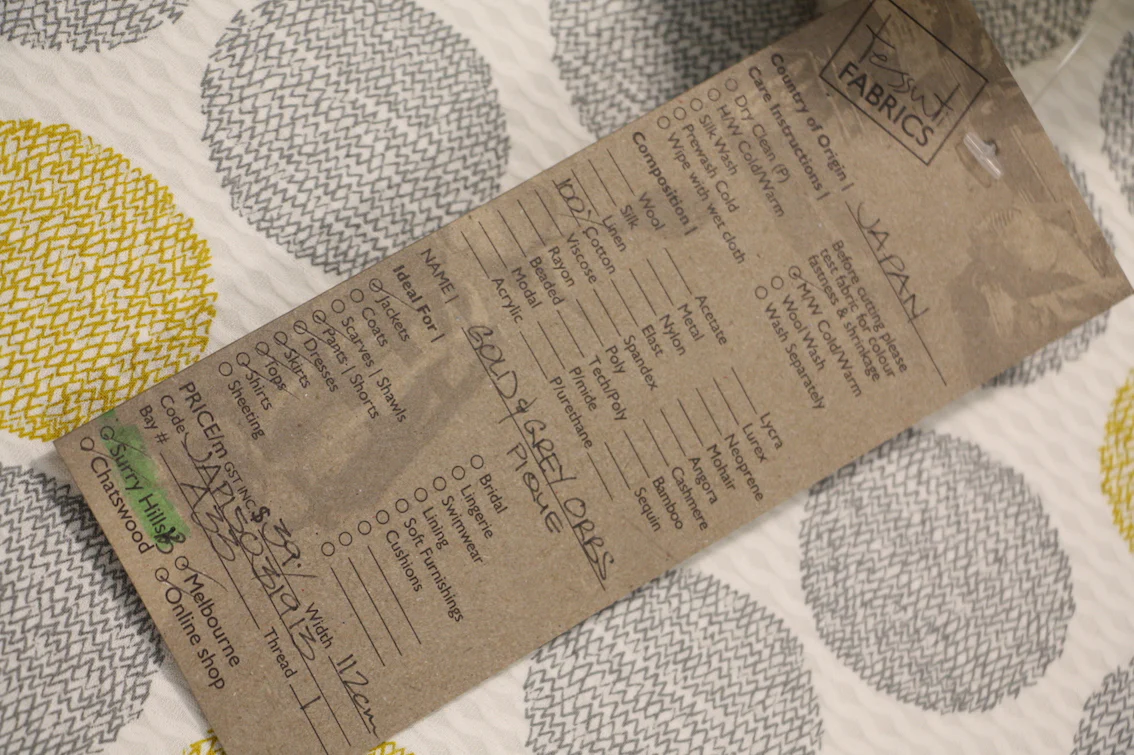 Tessuti
FABRICS
Country of Origin | JAPAN
Care Instructions |
Dry Clean (P)
H/W Cold/Warm
Silk Wash
Prewash Cold
Wipe with wet cloth
Before cutting please
test fabric for colour
fastness & shrinkage
M/W Cold/Warm
Wool Wash
Wash Separately
Composition |
Wool
Silk
Linen
100% Cotton
Viscose
Rayon
Beaded
Modal
Acrylic
Acetate
Metal
Nylon
Elast
Spandex
Poly
Tech/Poly
P/mide
P/urethane
Lycra
Lurex
Neoprene
Mohair
Angora
Cashmere
Bamboo
Sequin
NAME | GOLD & GREY ORBS
PIQUE
Ideal For |
Jackets
Coats
Scarves | Shawls
Pants | Shorts
Dresses
Skirts
Tops
Shirts
Sheeting
Bridal
Lingerie
Swimwear
Lining
Soft Furnishings
Cushions
PRICE/m GST INC. $39.
Width 112cm
Code
Thread
Bay #
Surry Hills
Chatswood
Melbourne
Online shop